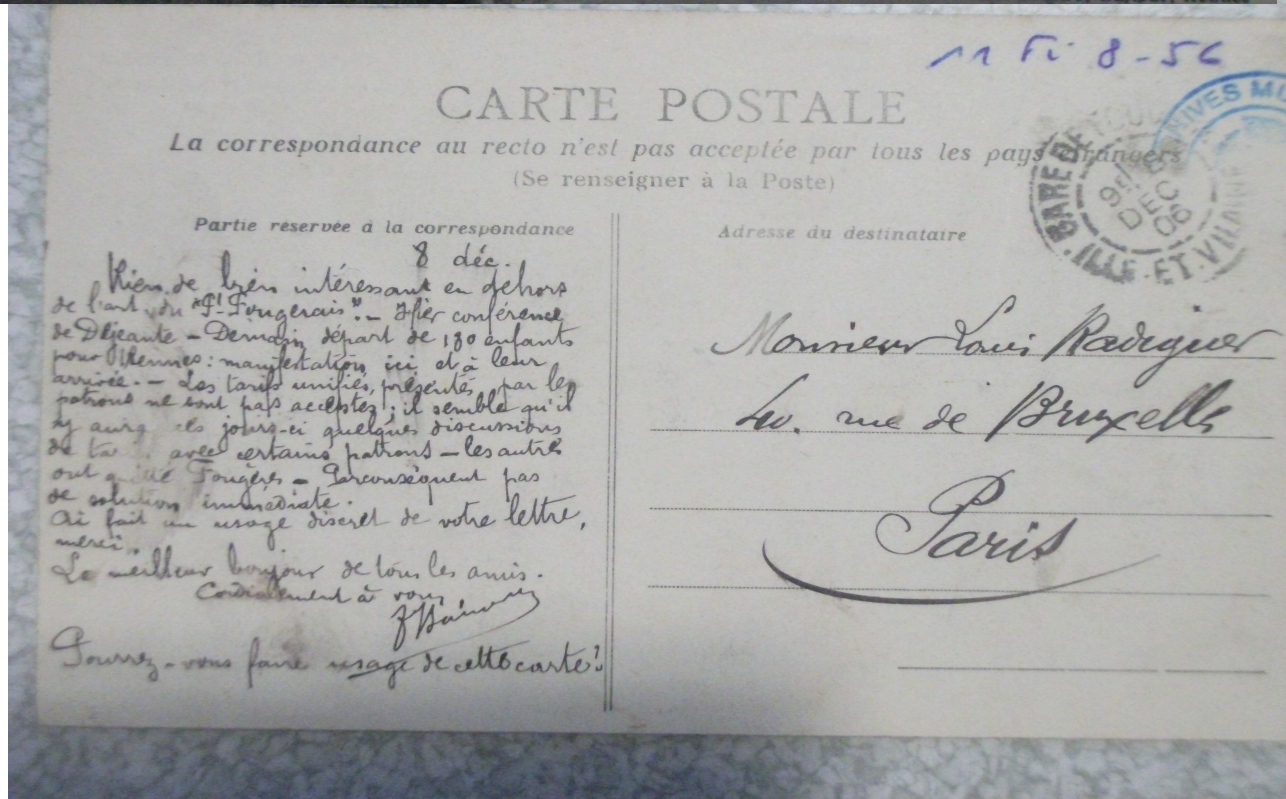 11 Fi 8-56
CARTE POSTALE
La correspondance au recto n'est pas acceptée par tous les pays étrangers
(Se renseigner à la Poste)
Partie réservée à la correspondance
8 déc.
Rien de bien intéressant en dehors
de l'art. du "Pt Fougerais". - Hier conférence
de Dejeante - Demain départ de 130 enfants
pour Rennes : manifestation ici et à leur
arrivée. - Les tarifs unifiés, présentés par les
patrons ne sont pas acceptés ; il semble qu'il
y aura ces jours-ci quelques discussions
de avec certains patrons - les autres
ont quitté Fougères - Parconséquent pas
de solution immédiate.
Ai fait un usage discret de votre lettre,
merci.
Le meilleur bonjour de tous les amis.
Cordialement à vous
Pourrez-vous faire usage de cette carte?
Adresse du destinataire
Monsieur Louis Radiguer
40. rue de Bruxelles
Paris
DEC
06
ILLE-ET-VILAINE